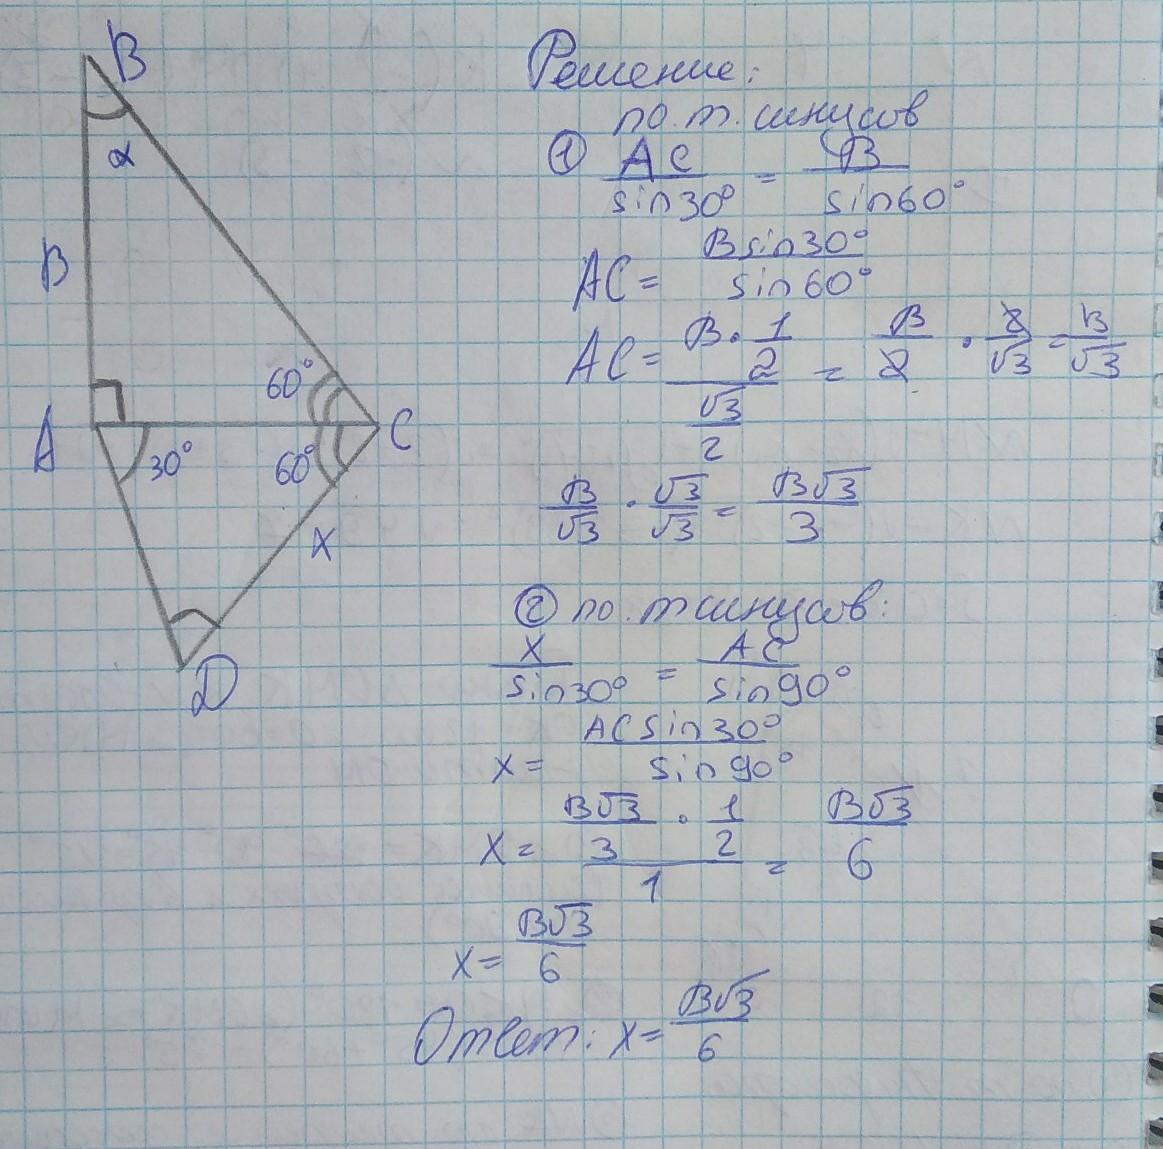 B
α
B
60°
A
C
30°
60°
x
D
Решение:
по. т. синусов
① AC/sin30° = B/sin60°
AC = Bsin30°/sin60°
AC = (B · 1/2)/(√3/2) = B/2 · 2/√3 = B/√3
B/√3 · √3/√3 = B√3/3
② по. т синусов:
x/sin30° = AC/sin90°
x = ACsin30°/sin90°
x = (B√3/3 · 1/2)/1 = B√3/6
x = B√3/6
Ответ: x = B√3/6